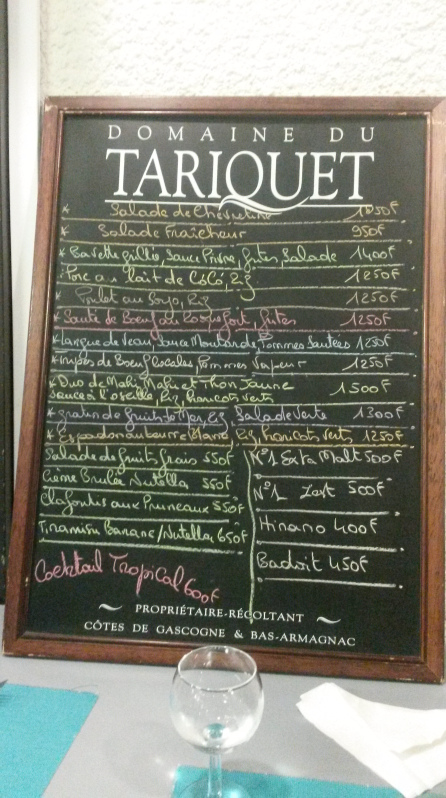 DOMAINE DU
TARIQUET
* Salade de Chèvretine 1050F
* Salade Fraîcheur 950F
* Bavette grillée, Sauce Poivre, frites, Salade 1400F
* Porc au lait de Coco, Riz 1250F
* Poulet au Soyo, Riz 1250F
* Sauté de Boeuf au Roquefort, frites 1250F
* Langue de Veau, Sauce Moutarde, Pommes Sautées 1250F
* Tripes de Boeuf locales, Pommes Vapeur 1250F
* Duo de Mahi Mahi et Thon Jaune
Sauce à l'oseille, Riz, haricots verts 1500F
* gratin de fruits de Mer, Riz, Salade Verte 1300F
* Espadon au beurre Blanc, Riz, haricots verts 1250F
Salade de fruits frais 550F
Crème Brulée Nutella 550F
Clafoutis aux Pruneaux 550F
Tiramisu Banane/Nutella 650F
Cocktail Tropical 600F
N°1 Extra Malt 500F
N°1 Zest 500F
Hinano 400F
Badoit 450F
PROPRIÉTAIRE-RÉCOLTANT
CÔTES DE GASCOGNE & BAS-ARMAGNAC